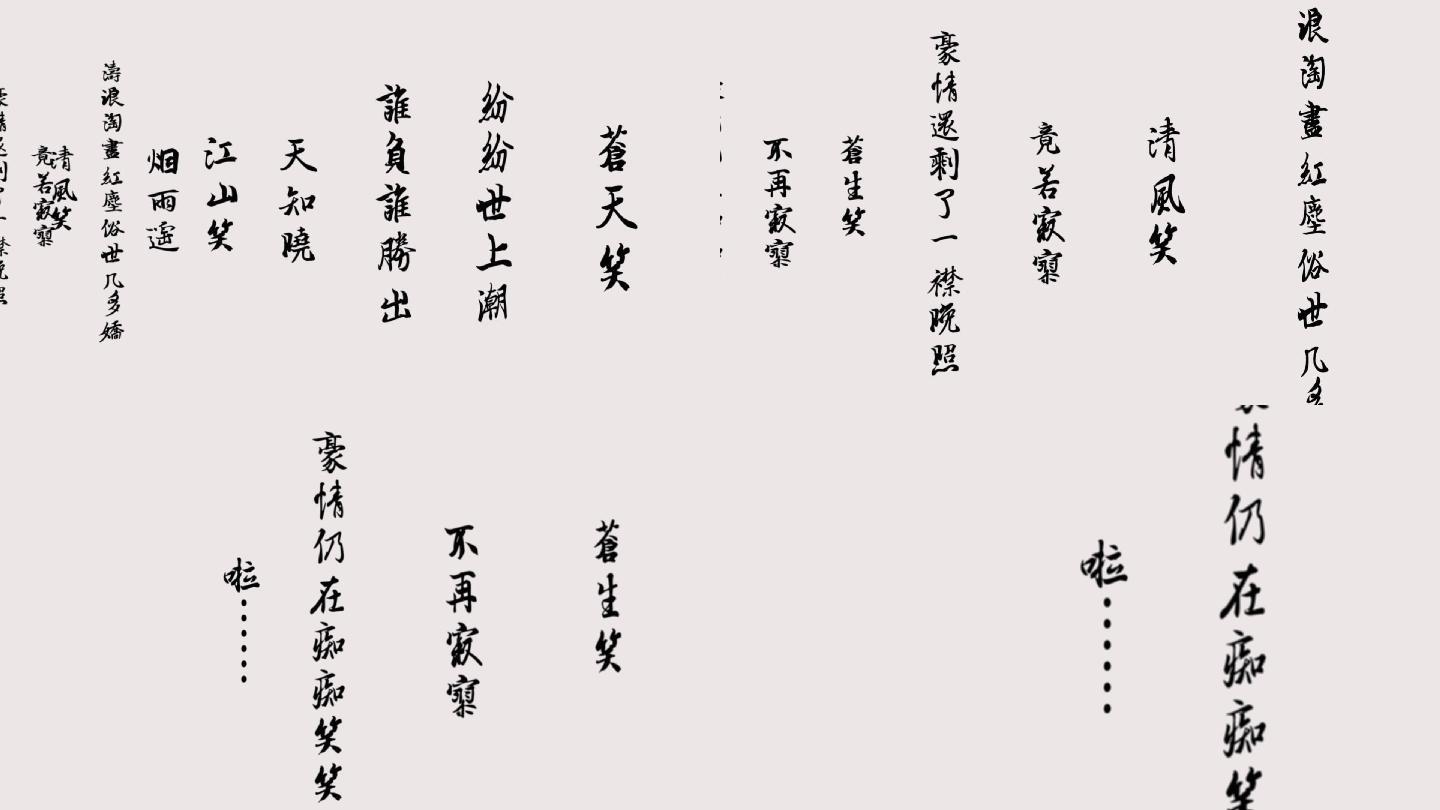 蒼天笑
紛紛世上潮
誰負誰勝出
天知曉
江山笑
烟雨遥
濤浪淘盡紅塵俗世几多嬌
清風笑
竟若寂寞
浪淘盡紅塵俗世几多
清風笑
竟若寂寞
豪情還剩了一襟晚照
蒼生笑
不再寂寞
蒼生笑
不再寂寞
豪情仍在痴痴笑笑
啦……
情仍在痴痴笑
啦……